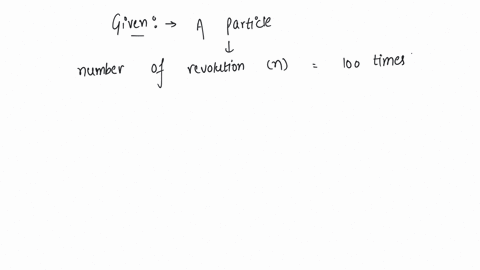 Given:→ A particle
↓
number of revolution (n) = 100 times